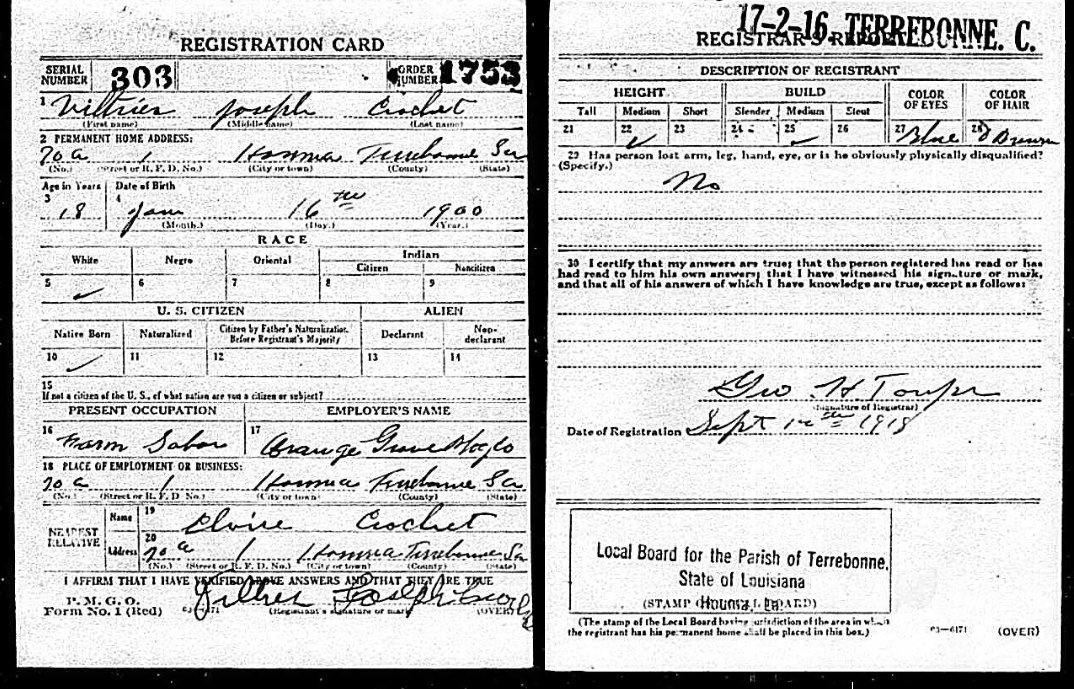 REGISTRATION CARD
SERIAL NUMBER 303 ORDER NUMBER 1753
1 Joseph Crochet
(First name) (Middle name) (Last name)
2 PERMANENT HOME ADDRESS:
70 a 1 Houma Terrebonne La
(No.) (Street or R. F. D. No.) (City or town) (County) (State)
Age in Years Date of Birth
3 18 4 Jan 16th 1900
(Month.) (Day.) (Year.)
RACE
White Negro Oriental Indian
Citizen Noncitizen
5 ✓ 6 7 8 9
U. S. CITIZEN ALIEN
Native Born Naturalized Citizen by Father's Naturalization Before Registrant's Majority Declarant Non-declarant
10 ✓ 11 12 13 14
15
If not a citizen of the U. S., of what nation are you a citizen or subject?
PRESENT OCCUPATION EMPLOYER'S NAME
16 Farm Labor 17 Orange Grove
18 PLACE OF EMPLOYMENT OR BUSINESS:
70 a 1 Houma Terrebonne La
(No.) (Street or R. F. D. No.) (City or town) (County) (State)
NEAREST RELATIVE
Name 19 Crochet
Address 20 70 a 1 Houma Terrebonne La
(No.) (Street or R. F. D. No.) (City or town) (County) (State)
I AFFIRM THAT I HAVE VERIFIED ABOVE ANSWERS AND THAT THEY ARE TRUE
P. M. G. O.
Form No. 1 (Red) 03—6171 Joseph
(Registrant's signature or mark) (OVER)
17-2-16. TERREBONNE. C.
REGISTRAR'S REPORT
DESCRIPTION OF REGISTRANT
HEIGHT BUILD COLOR OF EYES COLOR OF HAIR
Tall Medium Short Slender Medium Stout
21 22 ✓ 23 24 25 ✓ 26 27 Blue 28 Brown
29 Has person lost arm, leg, hand, eye, or is he obviously physically disqualified?
(Specify.)
No
30 I certify that my answers are true; that the person registered has read or has
had read to him his own answers; that I have witnessed his signature or mark,
and that all of his answers of which I have knowledge are true, except as follows:
Geo H Toups
(Signature of Registrar)
Date of Registration Sept 12th 1918
Local Board for the Parish of Terrebonne,
State of Louisiana
Houma, La.
(STAMP OF LOCAL BOARD)
(The stamp of the Local Board having jurisdiction of the area in which
the registrant has his permanent home shall be placed in this box.)
03—6171 (OVER)